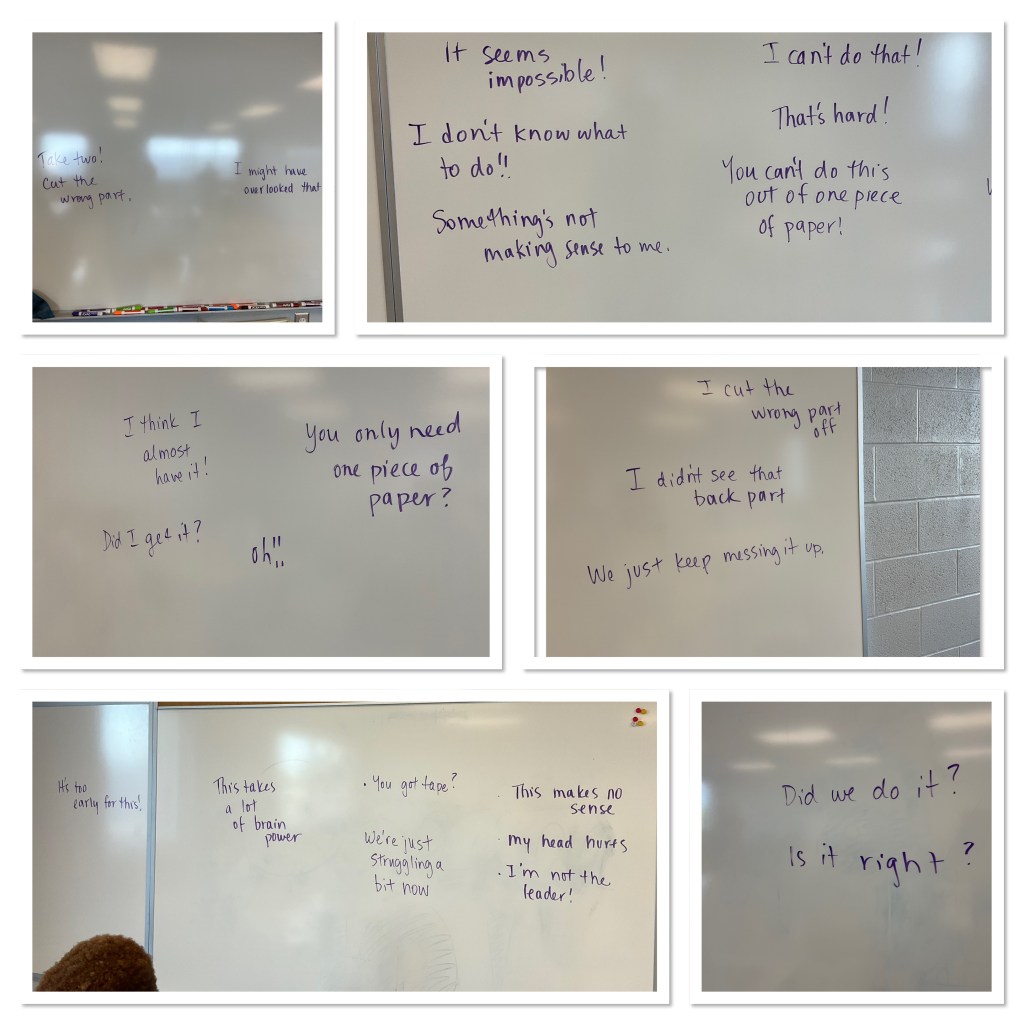 Take two!
Cut the
wrong part.
I might have
overlooked that
It seems
impossible!
I don't know what
to do!!
Something's not
making sense to me.
I can't do that!
That's hard!
You can't do this
out of one piece
of paper!
I think I
almost
have it!
Did I get it?
oh!!
You only need
one piece of
paper?
I cut the
wrong part
off
I didn't see that
back part
We just keep messing it up.
It's too
early for this!
This takes
a lot
of brain
power
• You got tape?
We're just
struggling a
bit now
• This makes no
sense
• my head hurts
• I'm not the
leader!
Did we do it?
Is it right?